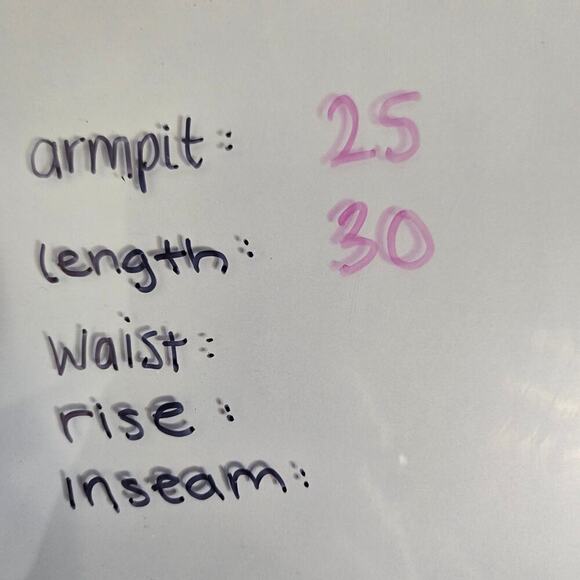 armpit: 25
length: 30
waist:
rise:
inseam: